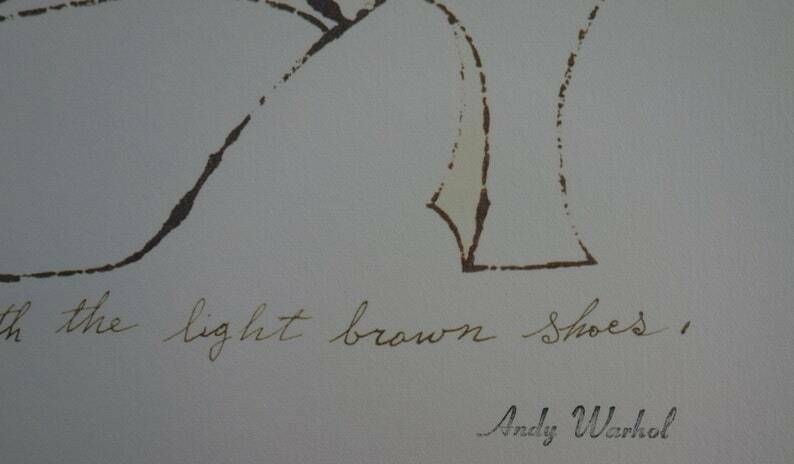 th the light brown shoes.
Andy Warhol